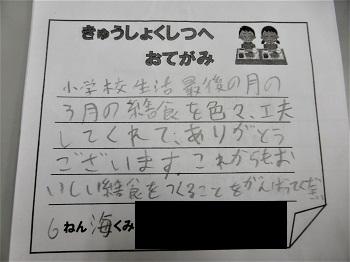 きゅうしょくしつへ
おてがみ
小学校生活最後の月の
3月の給食を色々、工夫
してくれて、ありがとう
ございます。これからもお
いしい給食をつくることをがんばってください。
6ねん海くみ